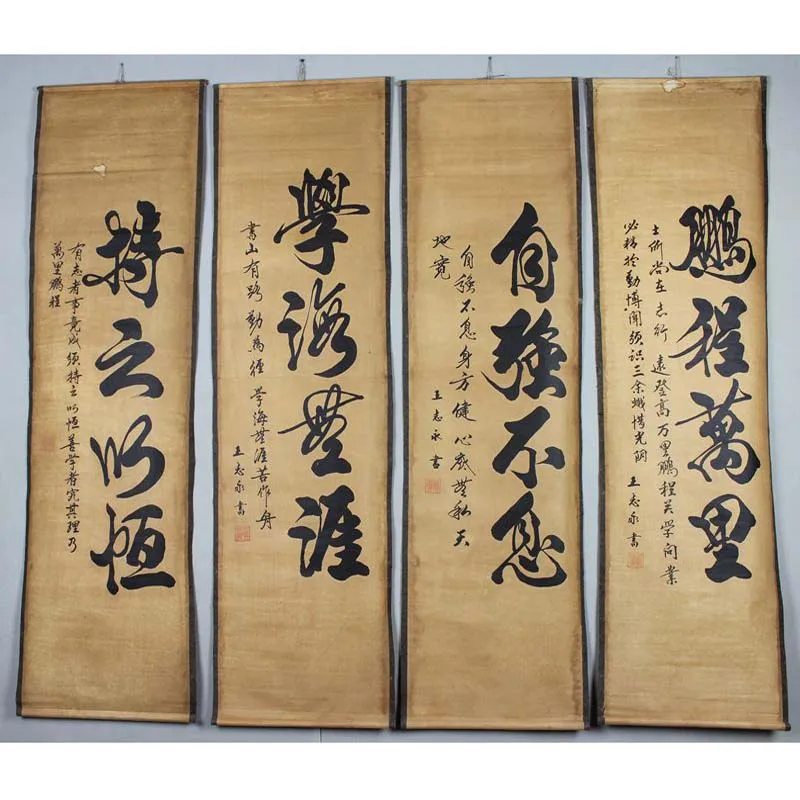 鵬程萬里
士所尚在志行遠登高万里鵬程关学问業
必精於勤博聞須識三余惜光阴
王志永書
自強不息
自強不息身方健心底無私天
地寬
王志永書
學海無涯
書山有路勤為徑學海無涯苦作舟
王志永書
持之以恒
有志者事竟成須持之以恒善学者究其理乃
萬里鵬程